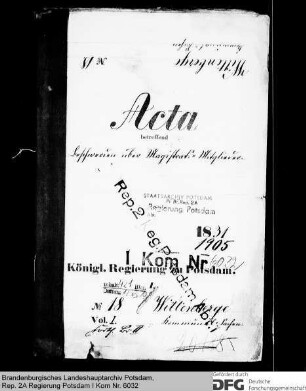 Communal Sachen
Wittenberge
No 18
Acta
betreffend
Beschwerden über Magistrats-Mitglieder.
Rep. 2A Reg. Potsdam
STAATSARCHIV POTSDAM
Pr. Br. Rep. 2A
Regierung Potsdam
1831
1905
I Kom Nr. 8032
Königl. Regierung zu Potsdam.
No 18 Wittenberge
Vol. I. Communal Sachen
Brandenburgisches Landeshauptarchiv Potsdam,
Rep. 2A Regierung Potsdam I Kom Nr. 8032
Gefördert durch
DFG Deutsche
Forschungsgemeinschaft